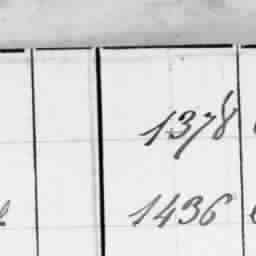 1378
1436